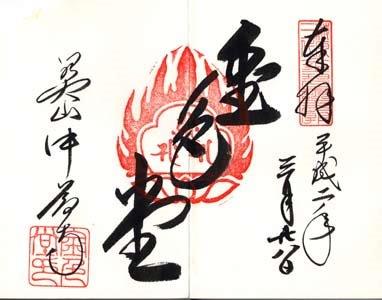 奉拝
平成二年
三月廿八日
金色堂
関山中尊寺